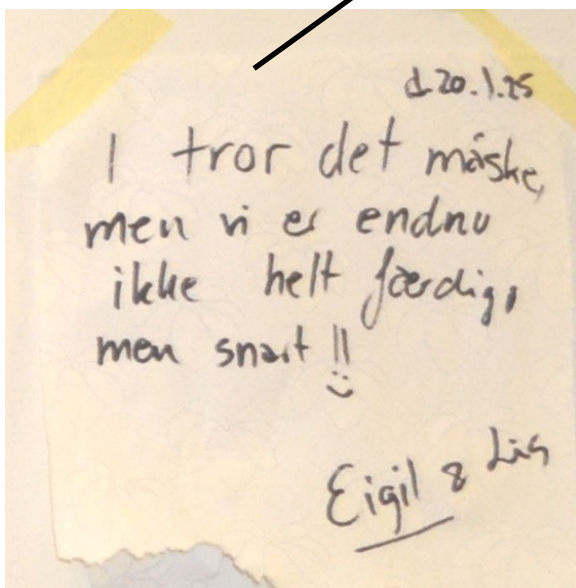 d.20.1.25
I tror det måske,
men vi er endnu
ikke helt færdig,
men snart !!
Eigil & Lis